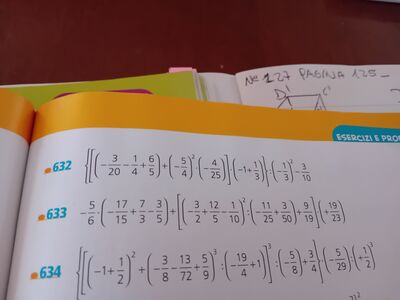 Nº 127 PAGINA 125-
D' C'
ESERCIZI E PRO
632 {[(-3/20-1/4+6/5)+(-5/4)²·(-4/25)]:(-1+1/3)}:(-1/3)²-3/10
633 -5/6·(-17/15+7/3-3/5)+[(-3/2+12/5-1/10)²:(-11/25+3/50+9/19)]·(+19/23)
634 {[(-1+1/2)²+(-3/8-13/72+5/9)³:(-19/4+1)]³:(-5/8)+3/4}·(-5/29):(+1/2)³